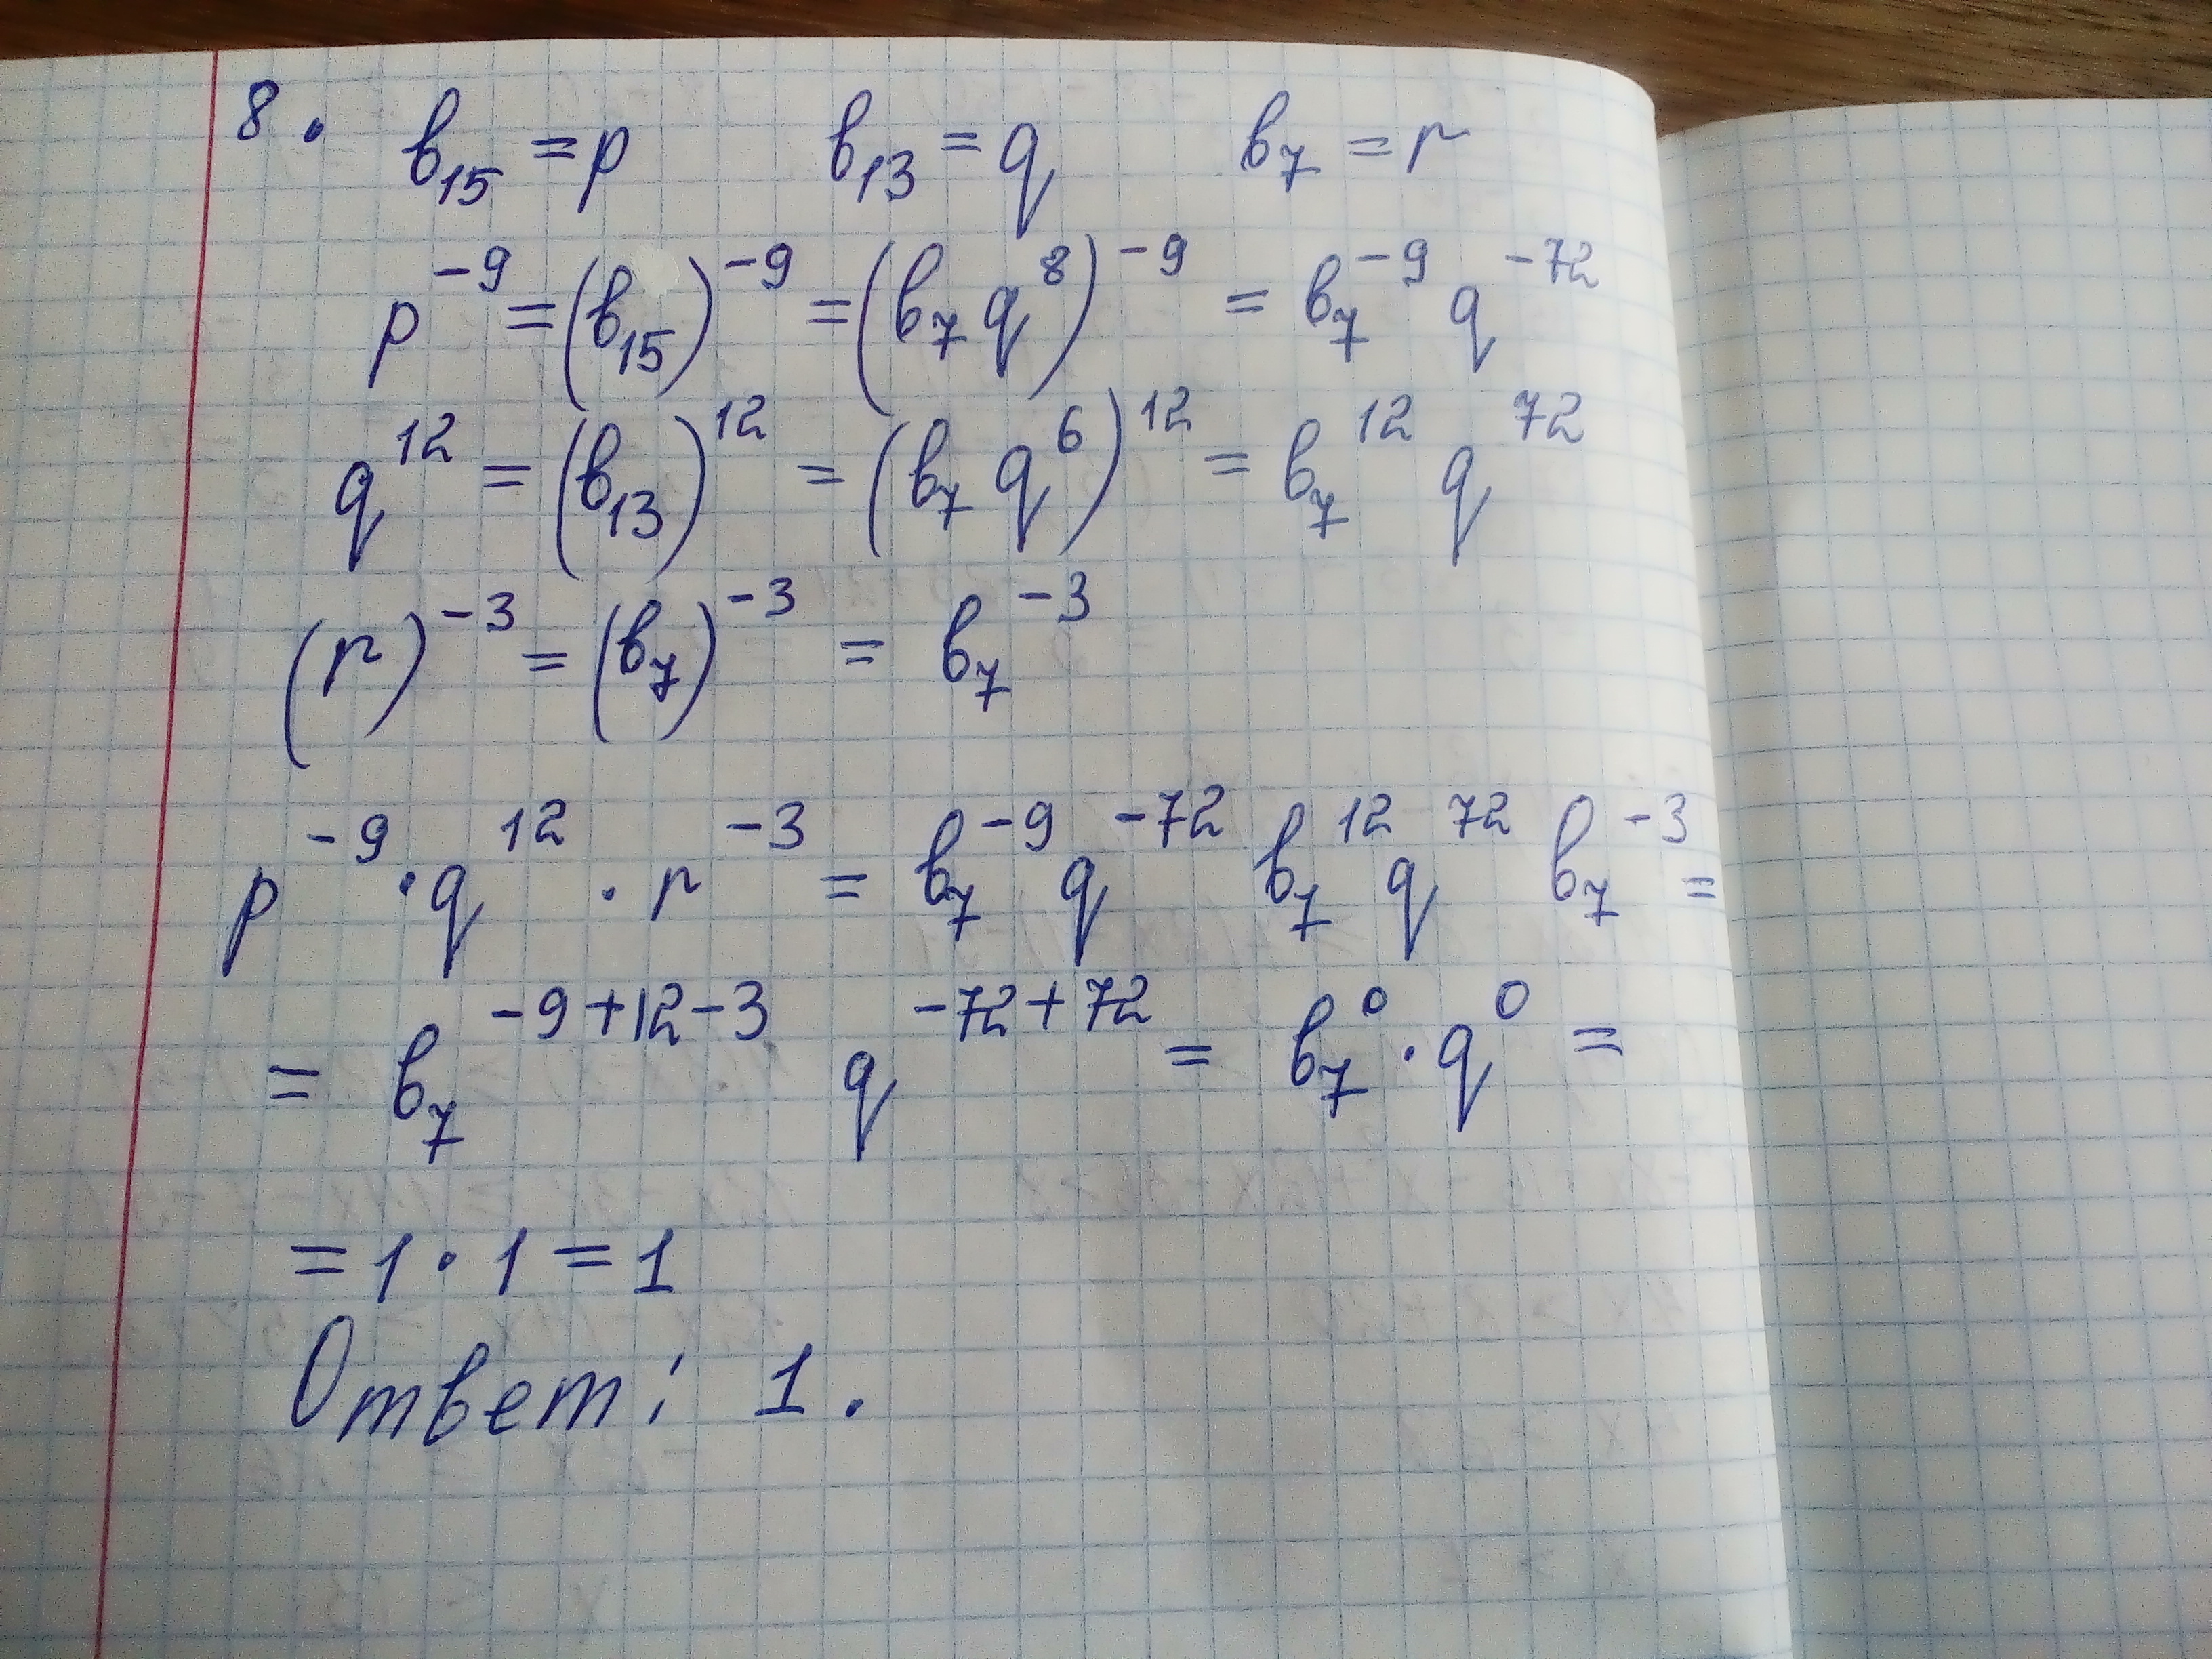 8. b₁₅ = p b₁₃ = q b₇ = r
p⁻⁹ = (b₁₅)⁻⁹ = (b₇ q⁸)⁻⁹ = b₇⁻⁹ q⁻⁷²
q¹² = (b₁₃)¹² = (b₇ q⁶)¹² = b₇¹² q⁷²
(r)⁻³ = (b₇)⁻³ = b₇⁻³
p⁻⁹ · q¹² · r⁻³ = b₇⁻⁹ q⁻⁷² b₇¹² q⁷² b₇⁻³ =
= b₇⁻⁹⁺¹²⁻³ q⁻⁷²⁺⁷² = b₇⁰ · q⁰ =
= 1 · 1 = 1
Ответ: 1.